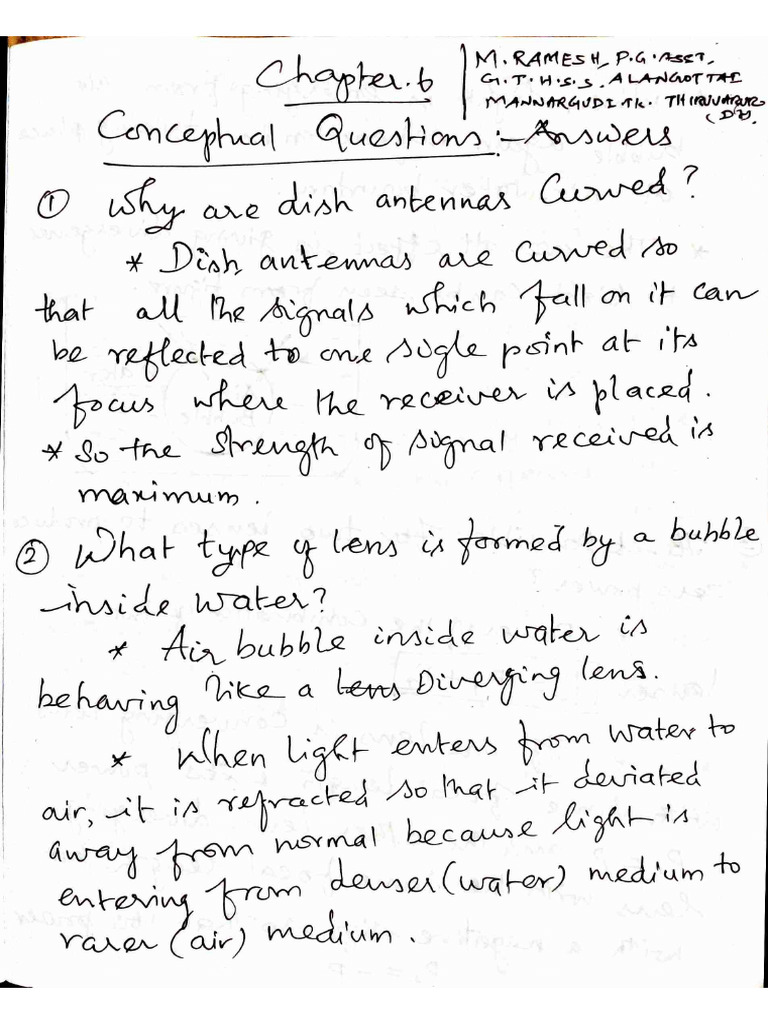 Chapter.6
M. RAMESH, P.G. ASST,
G.T.H.S.S. ALANGOTTAI
MANNARGUDI TK. THIRUVARUR
(Dt).
Conceptual Questions:- Answers
① Why are dish antennas Curved?
* Dish antennas are curved so
that all the signals which fall on it can
be reflected to one sigle point at its
focus where the receiver is placed.
* So the strength of signal received is
maximum.
② What type of lens is formed by a bubble
inside water?
* Air bubble inside water is
behaving like a lens Diverging lens.
* When light enters from water to
air, it is refracted so that it deviated
away from normal because light is
entering from denser (water) medium to
rarer (air) medium.